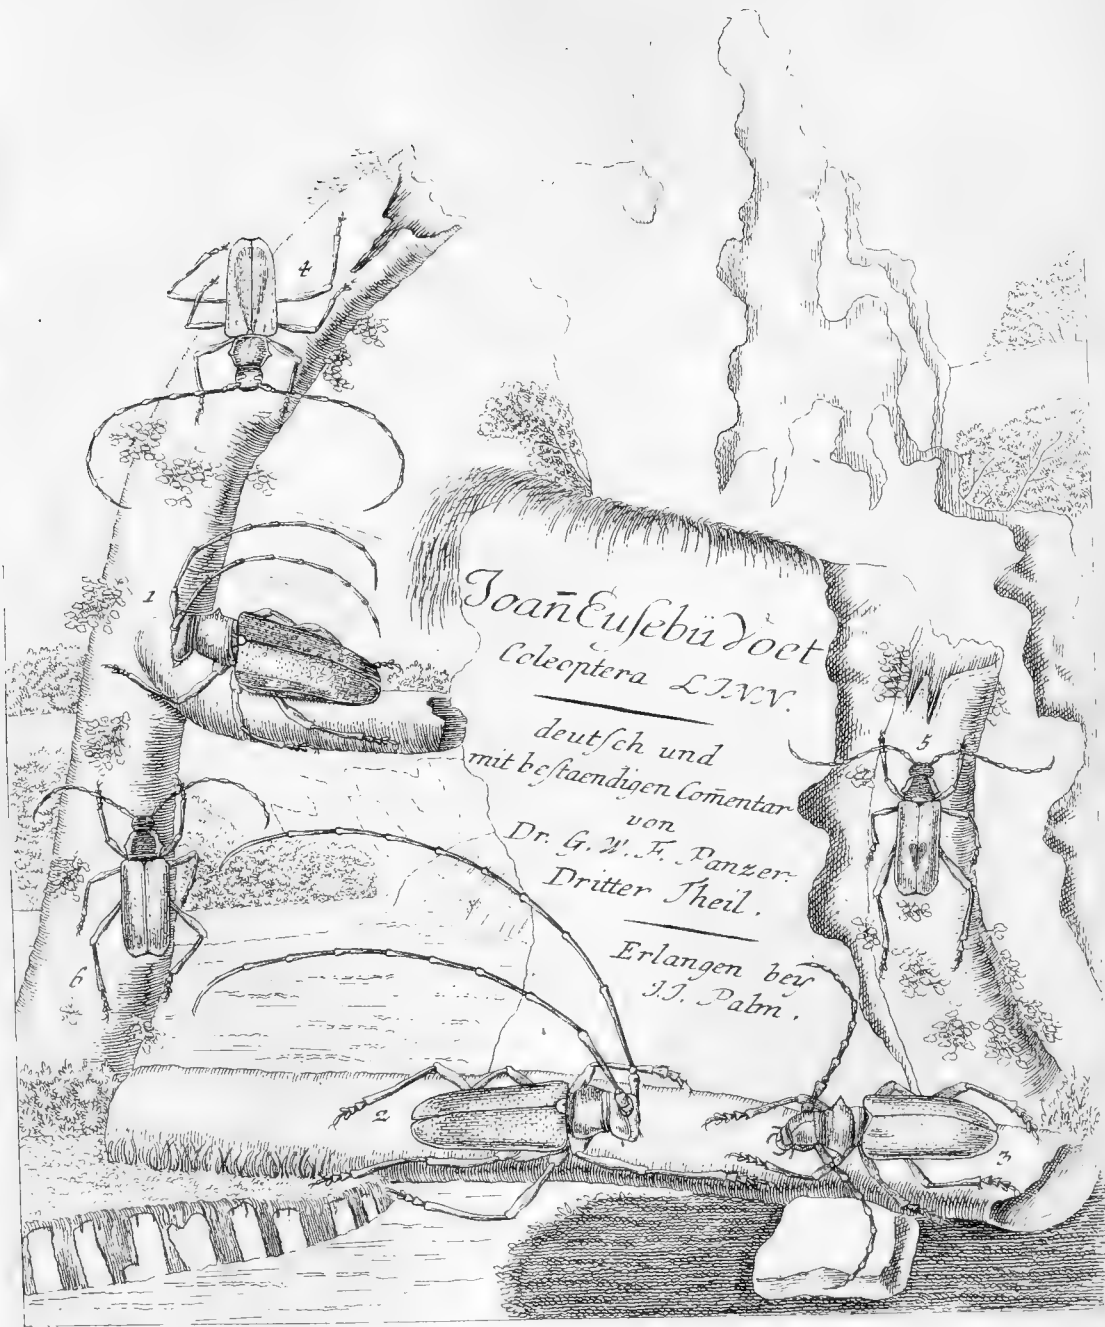 Joan̄ Euſebii Voet
Coleoptera LINN.
deutſch und
mit beſtaendigen Com̄entar
von
Dr. G. W. F. Panzer.
Dritter Theil.
Erlangen bey
J.J. Palm.
4
1
5
6
2
3